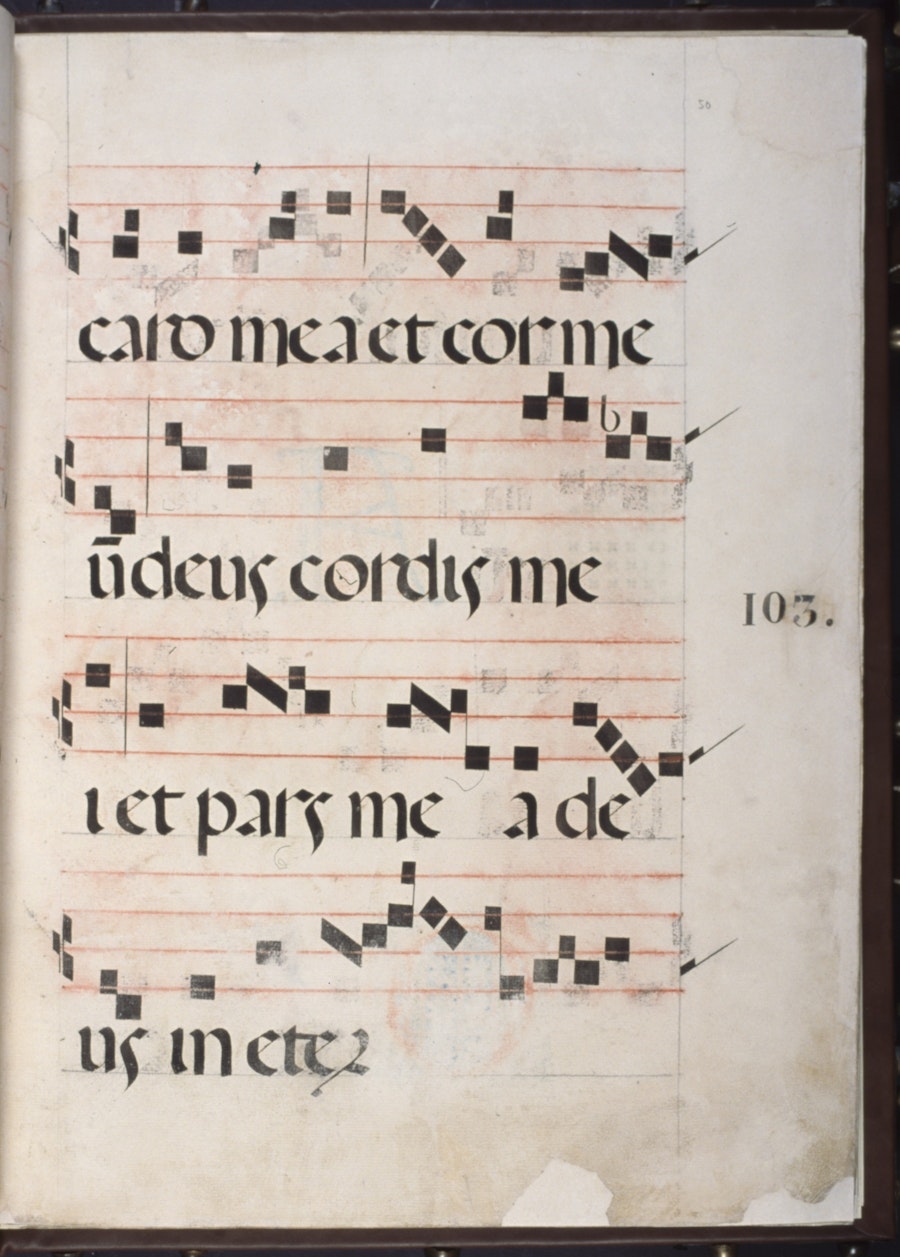 20
caro mea et cor me
ū deus cordis me
103.
ı et pars me a de
us in eteꝛ